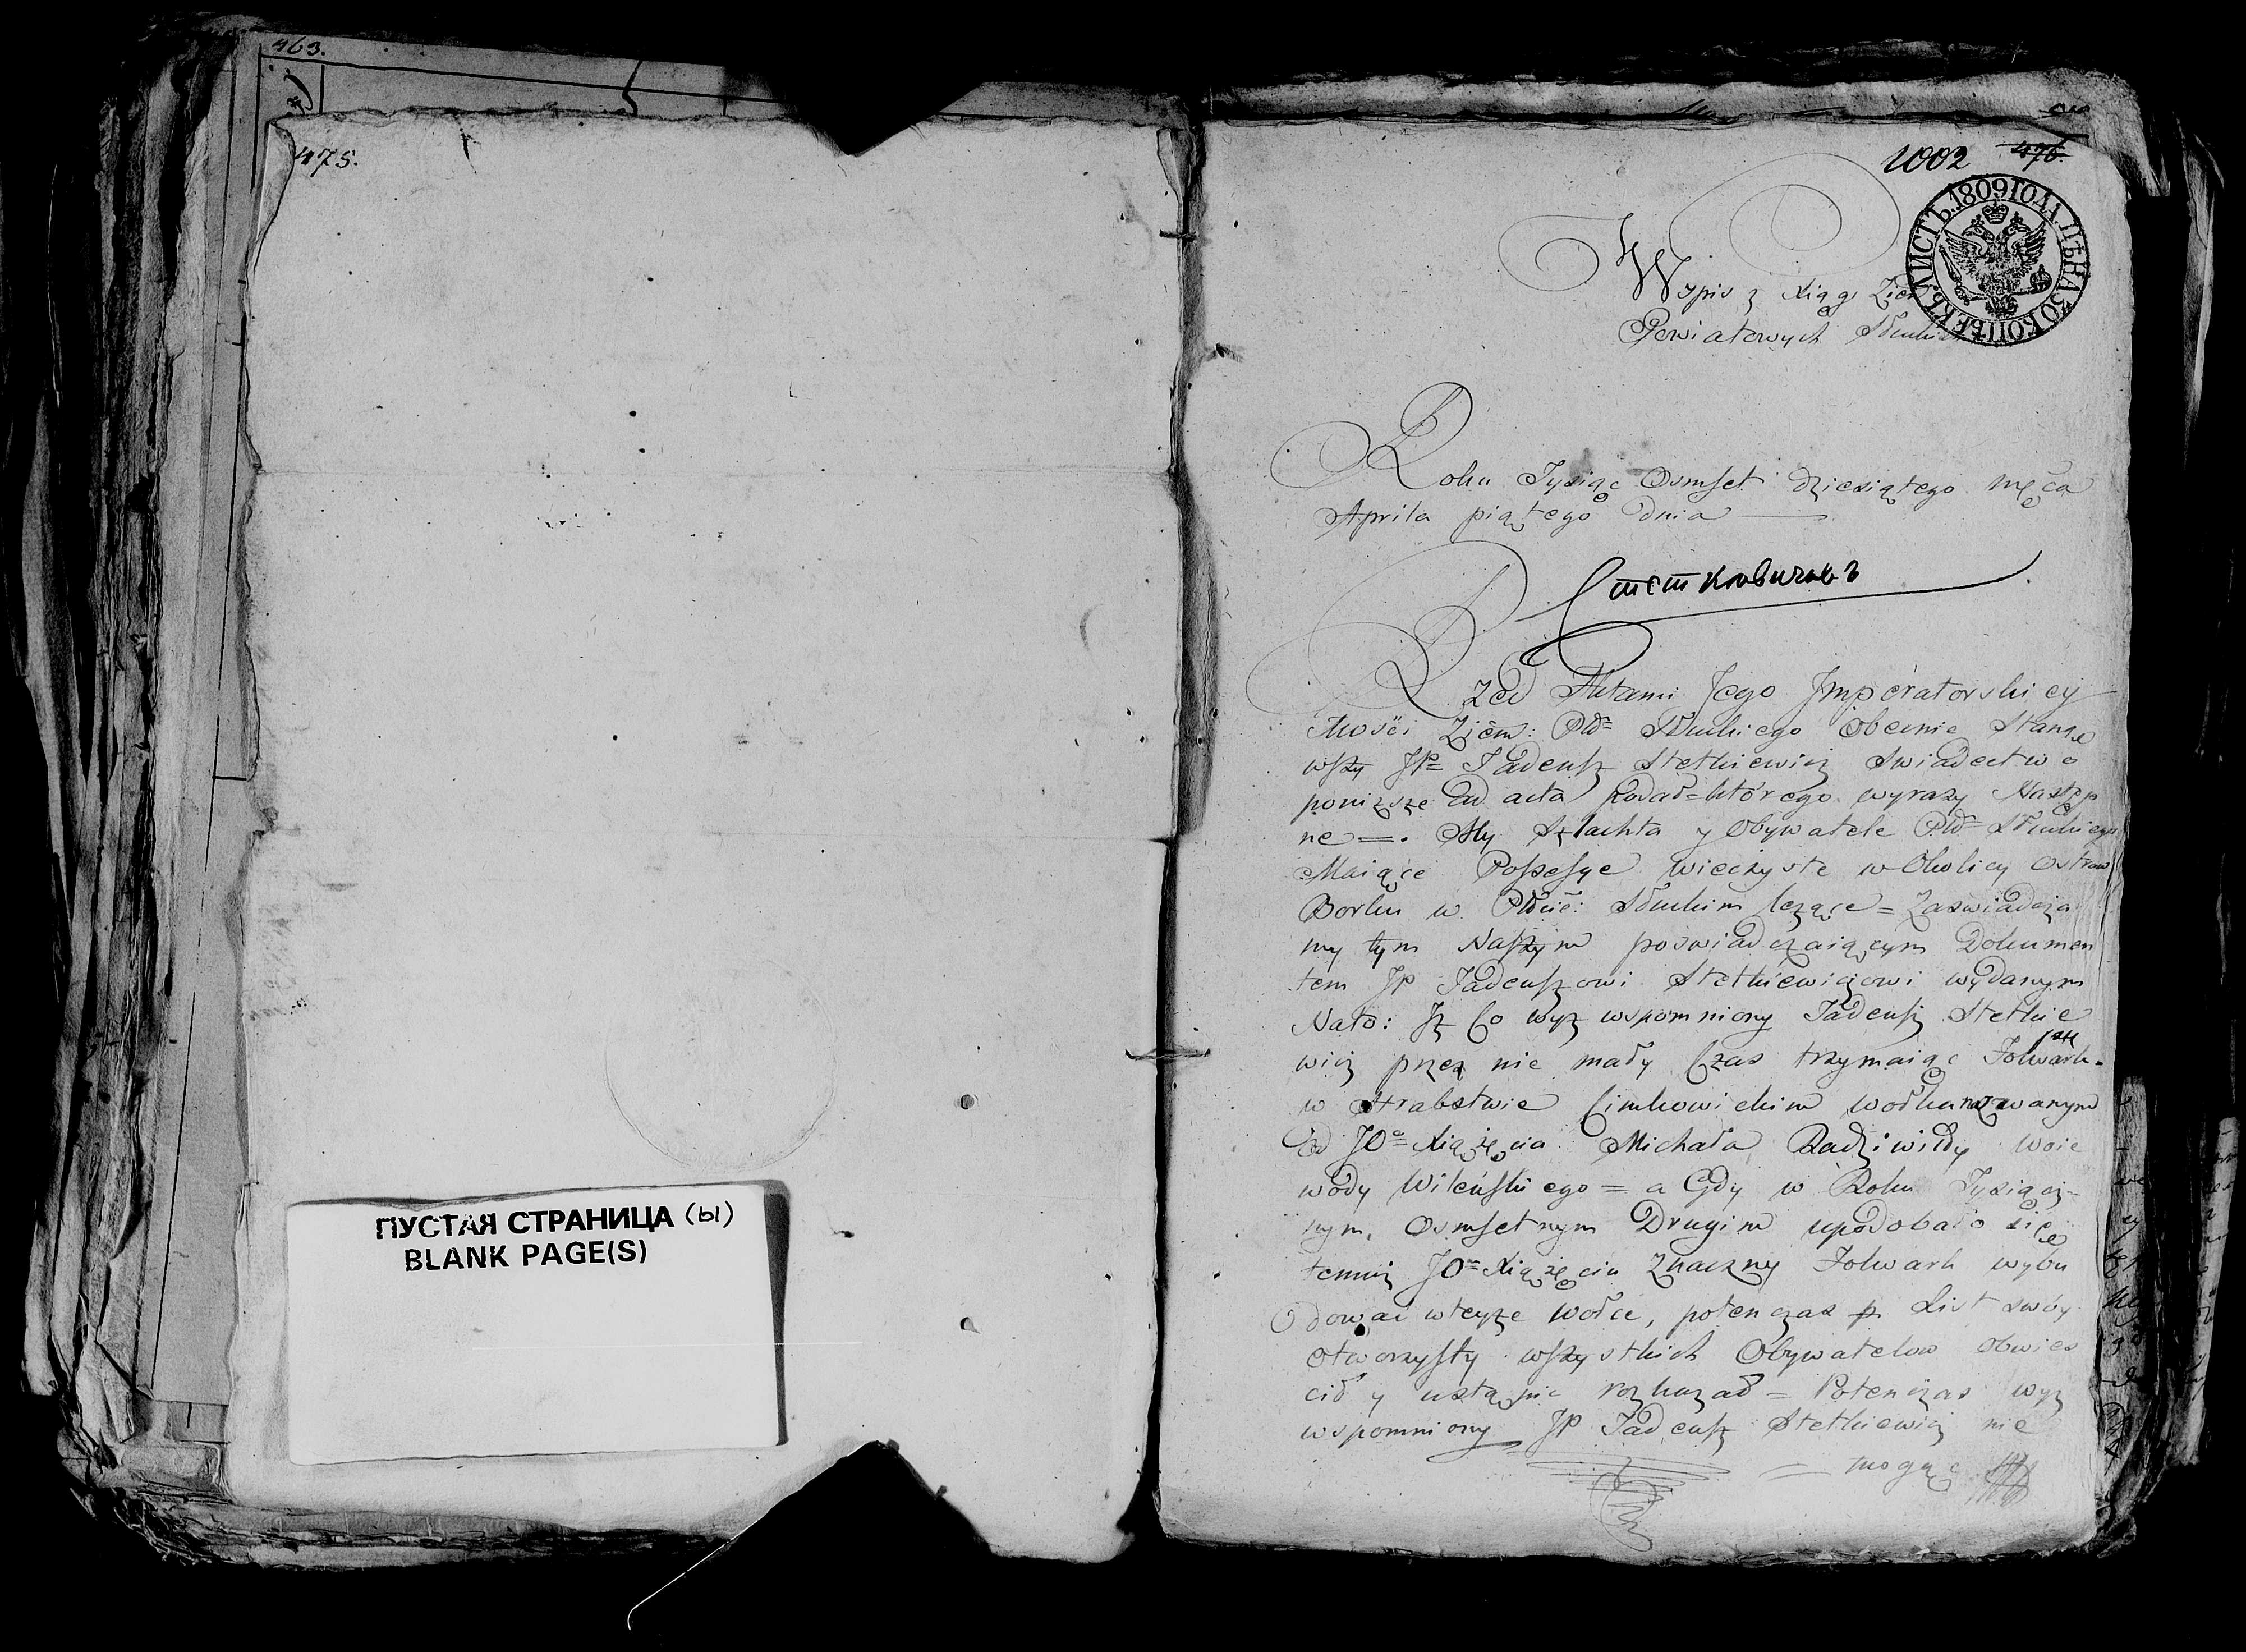 463.
475.
ПУСТАЯ СТРАНИЦА (ы)
BLANK PAGE(S)
1002 476.
ЛИСТЪ. 1809 ГОДА. ЦѢНА 30 КОПѢЕКЪ.
Wypis z Xiąg Ziem
Powiatowych Słuckich
Roku Tysiąc Osmset dziesiątego męca
Aprila piątego dnia
Стеткевичовъ
Przed Aktami Jego Imperatorskiey
Mości Ziem: Pttu Słuckiego Obecnie Staną
wszy JP Tadeusz Stetkiewicz Swiadectwo
ponizsze ad acta podał = którego wyrazy Następ
ne =. My Szlachta y Obywatele Pttu Słuckiego
Maiące Possesye wieczyste w Okolicy Ostrow
Borku w Pttcie: Słuckim leżące = Zaswiadcza
my tym Naszym poswiadczaiącym Dokumen
tem JP Tadeuszowi Stetkiewiczowi wydanym
Nato: Iż Co wyz wspomniony Tadeusz Stetkie
wicz przez nie mały Czas trzymaiąc Folwark
w Hrabstwie Cimkowickim wołka nazwanym
Od JO Xiążęcia Michała Radziwiłły Woie
wody Wileńskiego = a Gdy w Roku Tysiącz-
nym, Osmsetnym Drugim upodobało się
temuż JO Xiążęciu Znaczny Folwark wybu
dowac wteyże wołce, potenczas p List swóy
otworzysty wszystkich Obywatelow obwies
cił y ustąpic rozkazał = Potenczas wyz
wspomniony JP Tadeusz Stetkiewicz nie
mogąc